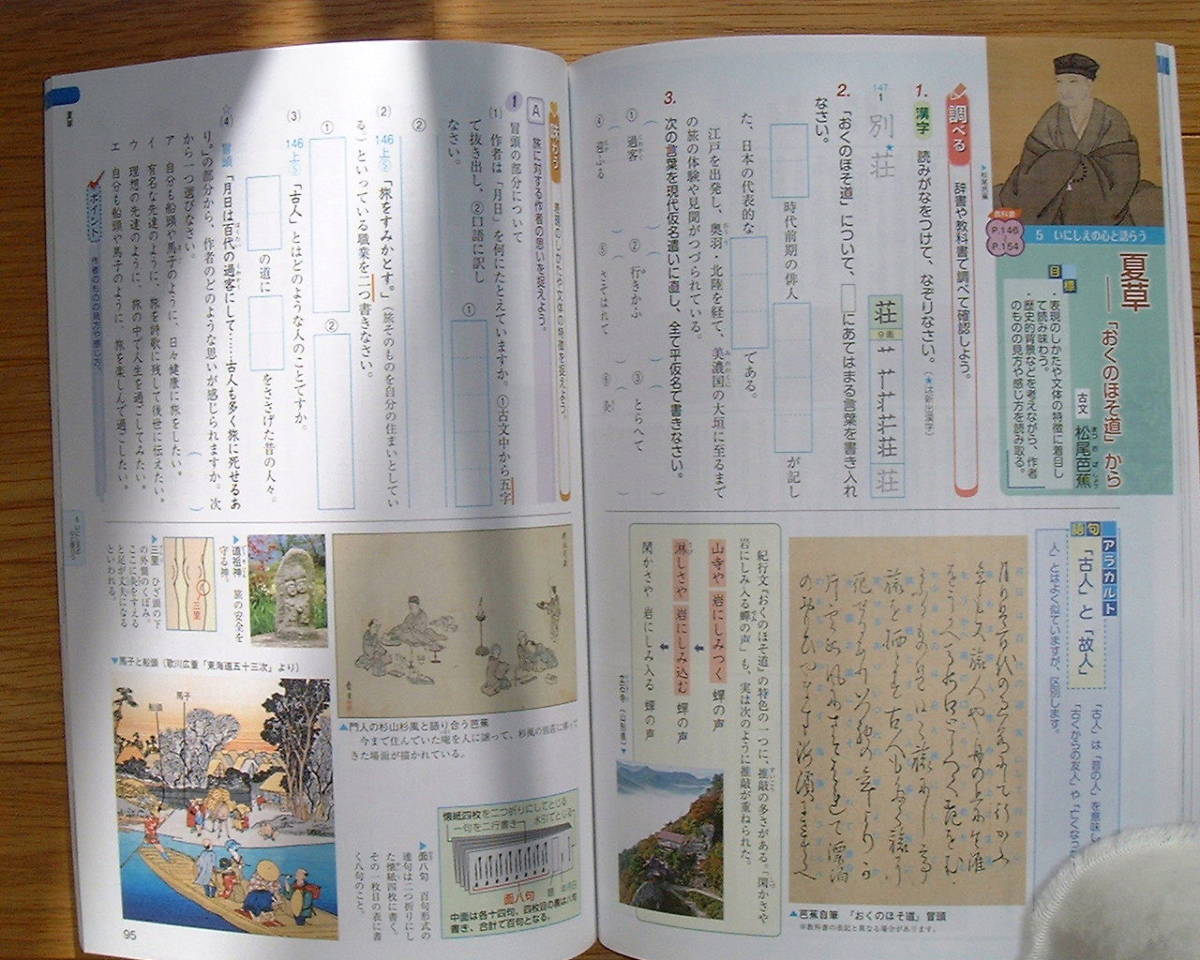 5 いにしえの心と語らう
夏草
――「おくのほそ道」から
古文
松尾芭蕉
教科書
P.146
P.154
目標
・表現のしかたや文体の特徴に着目して読み味わう。
・歴史的背景などを考えながら、作者のものの見方や感じ方を読み取る。
調べる
辞書や教科書で調べて確認しよう。
1. 漢字 読みがなをつけて、なぞりなさい。
147
1
別荘
荘
9画
荘
2. 「おくのほそ道」について、□にあてはまる言葉を書き入れ
なさい。
時代前期の俳人
が記し
た、日本の代表的な
である。
江戸を出発し、奥羽・北陸を経て、美濃国の大垣に至るまで
の旅の体験や見聞がつづられている。
3. 次の言葉を現代仮名遣いに直し、全て平仮名で書きなさい。
① 過客
② 行きかふ
③ とらへて
④ 迎ふる
⑤ さそはれて
⑥
語句アラカルト
「古人」と「故人」
「古人」は「昔の人」を意味し
「古くからの友人」や「亡くな
人」とはよく似ていますが、区別します。
▲芭蕉自筆 「おくのほそ道」冒頭
※教科書の表記と異なる場合があります。
紀行文「おくのほそ道」の特色の一つに、推敲の多さがある。「閑かさや
岩にしみ入る蟬の声」も、実は次のように推敲が重ねられた。
山寺や 岩にしみつく 蟬の声
淋しさや 岩にしみ込む 蟬の声
閑かさや 岩にしみ入る 蟬の声
味わう
表現のしかたや文体の特徴を捉えよう。
A
旅に対する作者の思いを捉えよう。
1 冒頭の部分について
(1) 作者は「月日」を何にたとえていますか。①古文中から五字
で抜き出し、②口語に訳し
なさい。
①
②
(2) 146上5 「旅をすみかとす。」(旅そのものを自分の住まいとしてい
る)といっている職業を二つ書きなさい。
①
②
(3) 146上5 「古人」とはどのような人のことですか。
の道に
をささげた昔の人々。
☆(4) 冒頭「月日は百代の過客にして……古人も多く旅に死せるあ
り。」の部分から、作者のどのような思いが感じられますか。次
から一つ選びなさい。
ア 自分も船頭や馬子のように、日々健康に旅をしたい。
イ 有名な先達のように、旅を詩歌に残して後世に伝えたい。
ウ 理想の先達のように、旅の中で人生を過ごしてみたい。
エ 自分も船頭や馬子のように、旅を楽しんで過ごしたい。
ポイント
作者のものの見方や感じ方。
夏草
▲門人の杉山杉風と語り合う芭蕉
今まで住んでいた庵を人に譲って、杉風の別荘に移って
きた場面が描かれている。
▶道祖神 旅の安全を
守る神。
三里
▶三里 ひざ頭の下
の外側のくぼみ。
ここに灸をすえる
と足が丈夫になる
といわれる。
▼馬子と船頭(歌川広重「東海道五十三次」より)
馬子
船頭
懐紙四枚を二つ折りにしてとじる
一句を二行書き
水引でとじる
面八句
中面は各十四句、四枚目の裏は八句
書き、合計で百句となる。
▶面八句 百句形式の
連句は二つ折りにし
た懐紙四枚に書く。
その一枚目の表に書
く八句のこと。
95